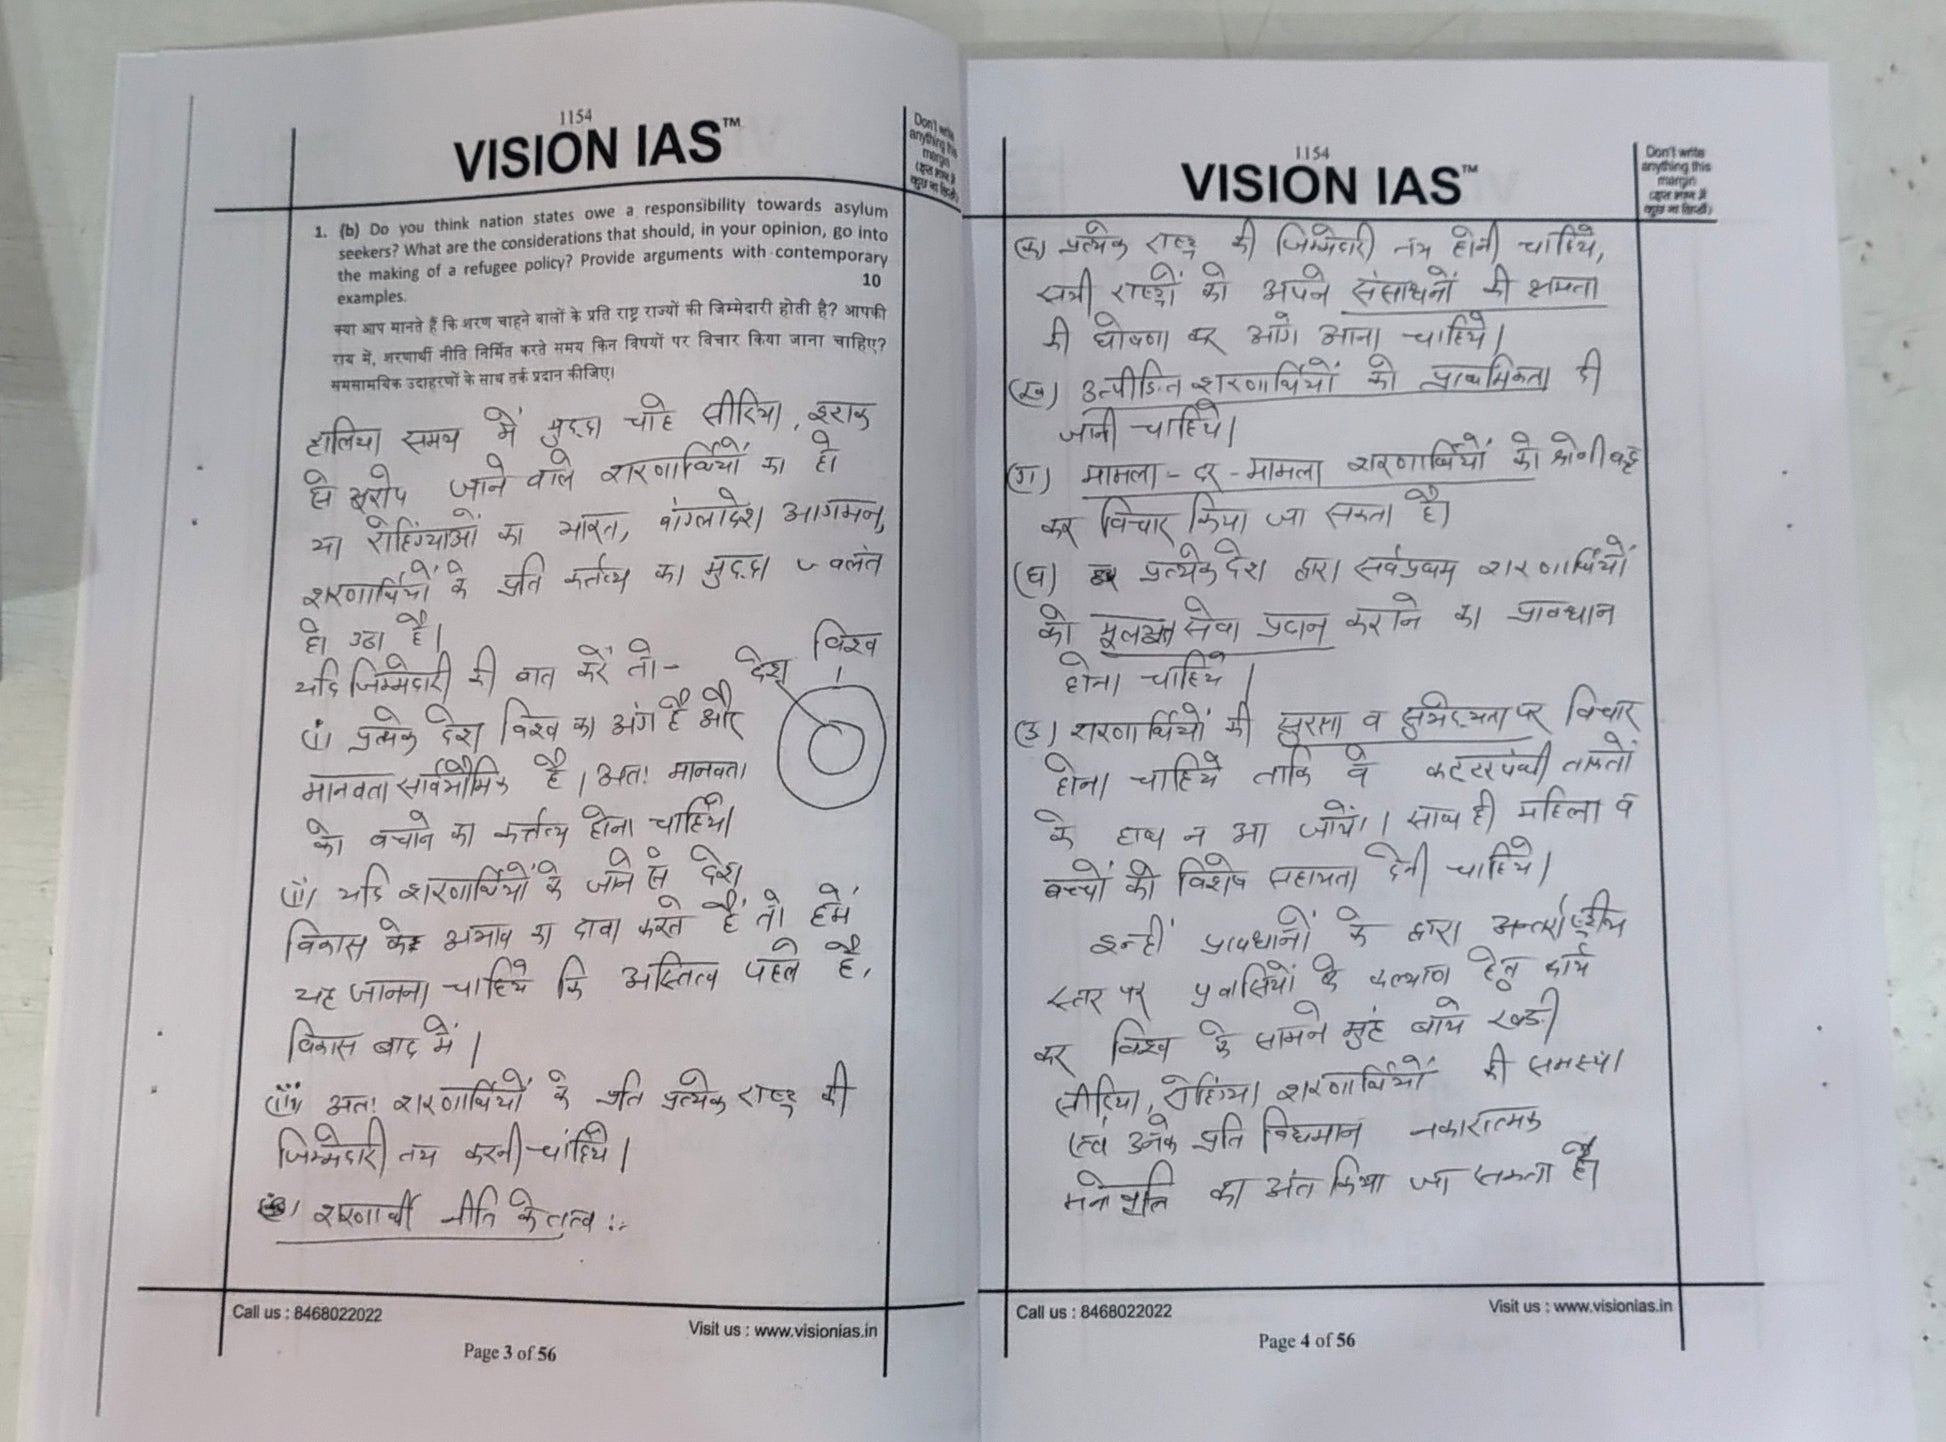 1154
VISION IAS™
Don't write
anything this
margin
(इस भाग में
कुछ ना लिखें)
1. (b) Do you think nation states owe a responsibility towards asylum
seekers? What are the considerations that should, in your opinion, go into
the making of a refugee policy? Provide arguments with contemporary
examples. 10
क्या आप मानते हैं कि शरण चाहने वालों के प्रति राष्ट्र राज्यों की जिम्मेदारी होती है? आपकी
राय में, शरणार्थी नीति निर्मित करते समय किन विषयों पर विचार किया जाना चाहिए?
समसामयिक उदाहरणों के साथ तर्क प्रदान कीजिए।
हालिया समय में मुद्दा चाहे सीरिया, इराक
से यूरोप जाने वाले शरणार्थियों का हो
या रोहिंग्याओं का भारत, बांग्लादेश आगमन,
शरणार्थियों के प्रति कर्तव्य का मुद्दा ज्वलंत
हो उठा है।
यदि जिम्मेदारी की बात करें तो- देश विश्व
(i) प्रत्येक देश विश्व का अंग है और
मानवता सार्वभौमिक है। अतः मानवता
को बचाने का कर्त्तव्य होना चाहिये।
(ii) यदि शरणार्थियों के जाने से देश
विकास के अभाव का दावा करते हैं तो हमें
यह जानना चाहिये कि अस्तित्व पहले है,
विकास बाद में।
(iii) अतः शरणार्थियों के प्रति प्रत्येक राष्ट्र की
जिम्मेदारी तय करनी चाहिये।
शरणार्थी नीति के तत्व :-
Call us : 8468022022
Visit us : www.visionias.in
Page 3 of 56
1154
VISION IAS™
Don't write
anything this
margin
(इस भाग में
कुछ ना लिखें)
(क) प्रत्येक राष्ट्र की जिम्मेदारी तय होनी चाहिये,
सभी राष्ट्रों को अपने संसाधनों की क्षमता
की घोषणा कर आगे आना चाहिये।
(ख) उत्पीड़ित शरणार्थियों को प्राथमिकता दी
जानी चाहिये।
(ग) मामला-दर-मामला शरणार्थियों को श्रेणीबद्ध
कर विचार किया जा सकता है।
(घ) प्रत्येक देश द्वारा सर्वप्रथम शरणार्थियों
को मूलभूत सेवा प्रदान कराने का प्रावधान
होना चाहिये।
(ङ) शरणार्थियों की सुरक्षा व सुभेद्यता पर विचार
होना चाहिये ताकि वे कट्टरपंथी ताकतों
के हाथ न आ जायें। साथ ही महिला व
बच्चों को विशेष सहायता देनी चाहिये।
इन्हीं प्रावधानों के द्वारा अन्तर्राष्ट्रीय
स्तर पर प्रवासियों के कल्याण हेतु कार्य
कर विश्व के सामने मुंह बाये खड़ी
सीरिया, रोहिंग्या शरणार्थियों की समस्या
एवं उनके प्रति विद्यमान नकारात्मक
मनोवृत्ति का अंत किया जा सकता है।
Call us : 8468022022
Visit us : www.visionias.in
Page 4 of 56